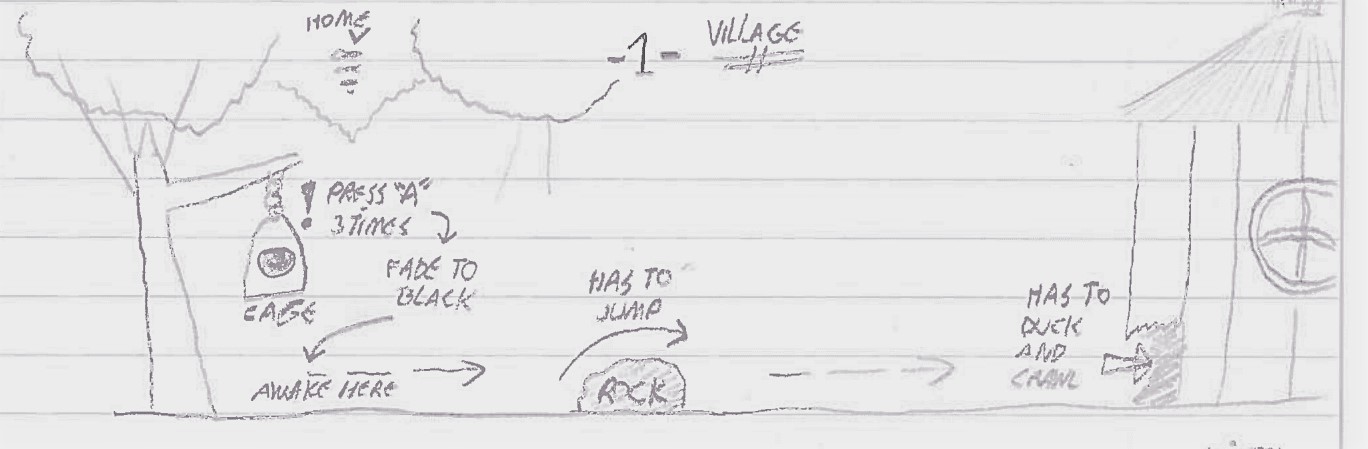 HOME
-1- VILLAGE
! PRESS "A"
3 TIMES
FADE TO
BLACK
CAGE
AWAKE HERE
HAS TO
JUMP
ROCK
HAS TO
DUCK
AND
CRAWL